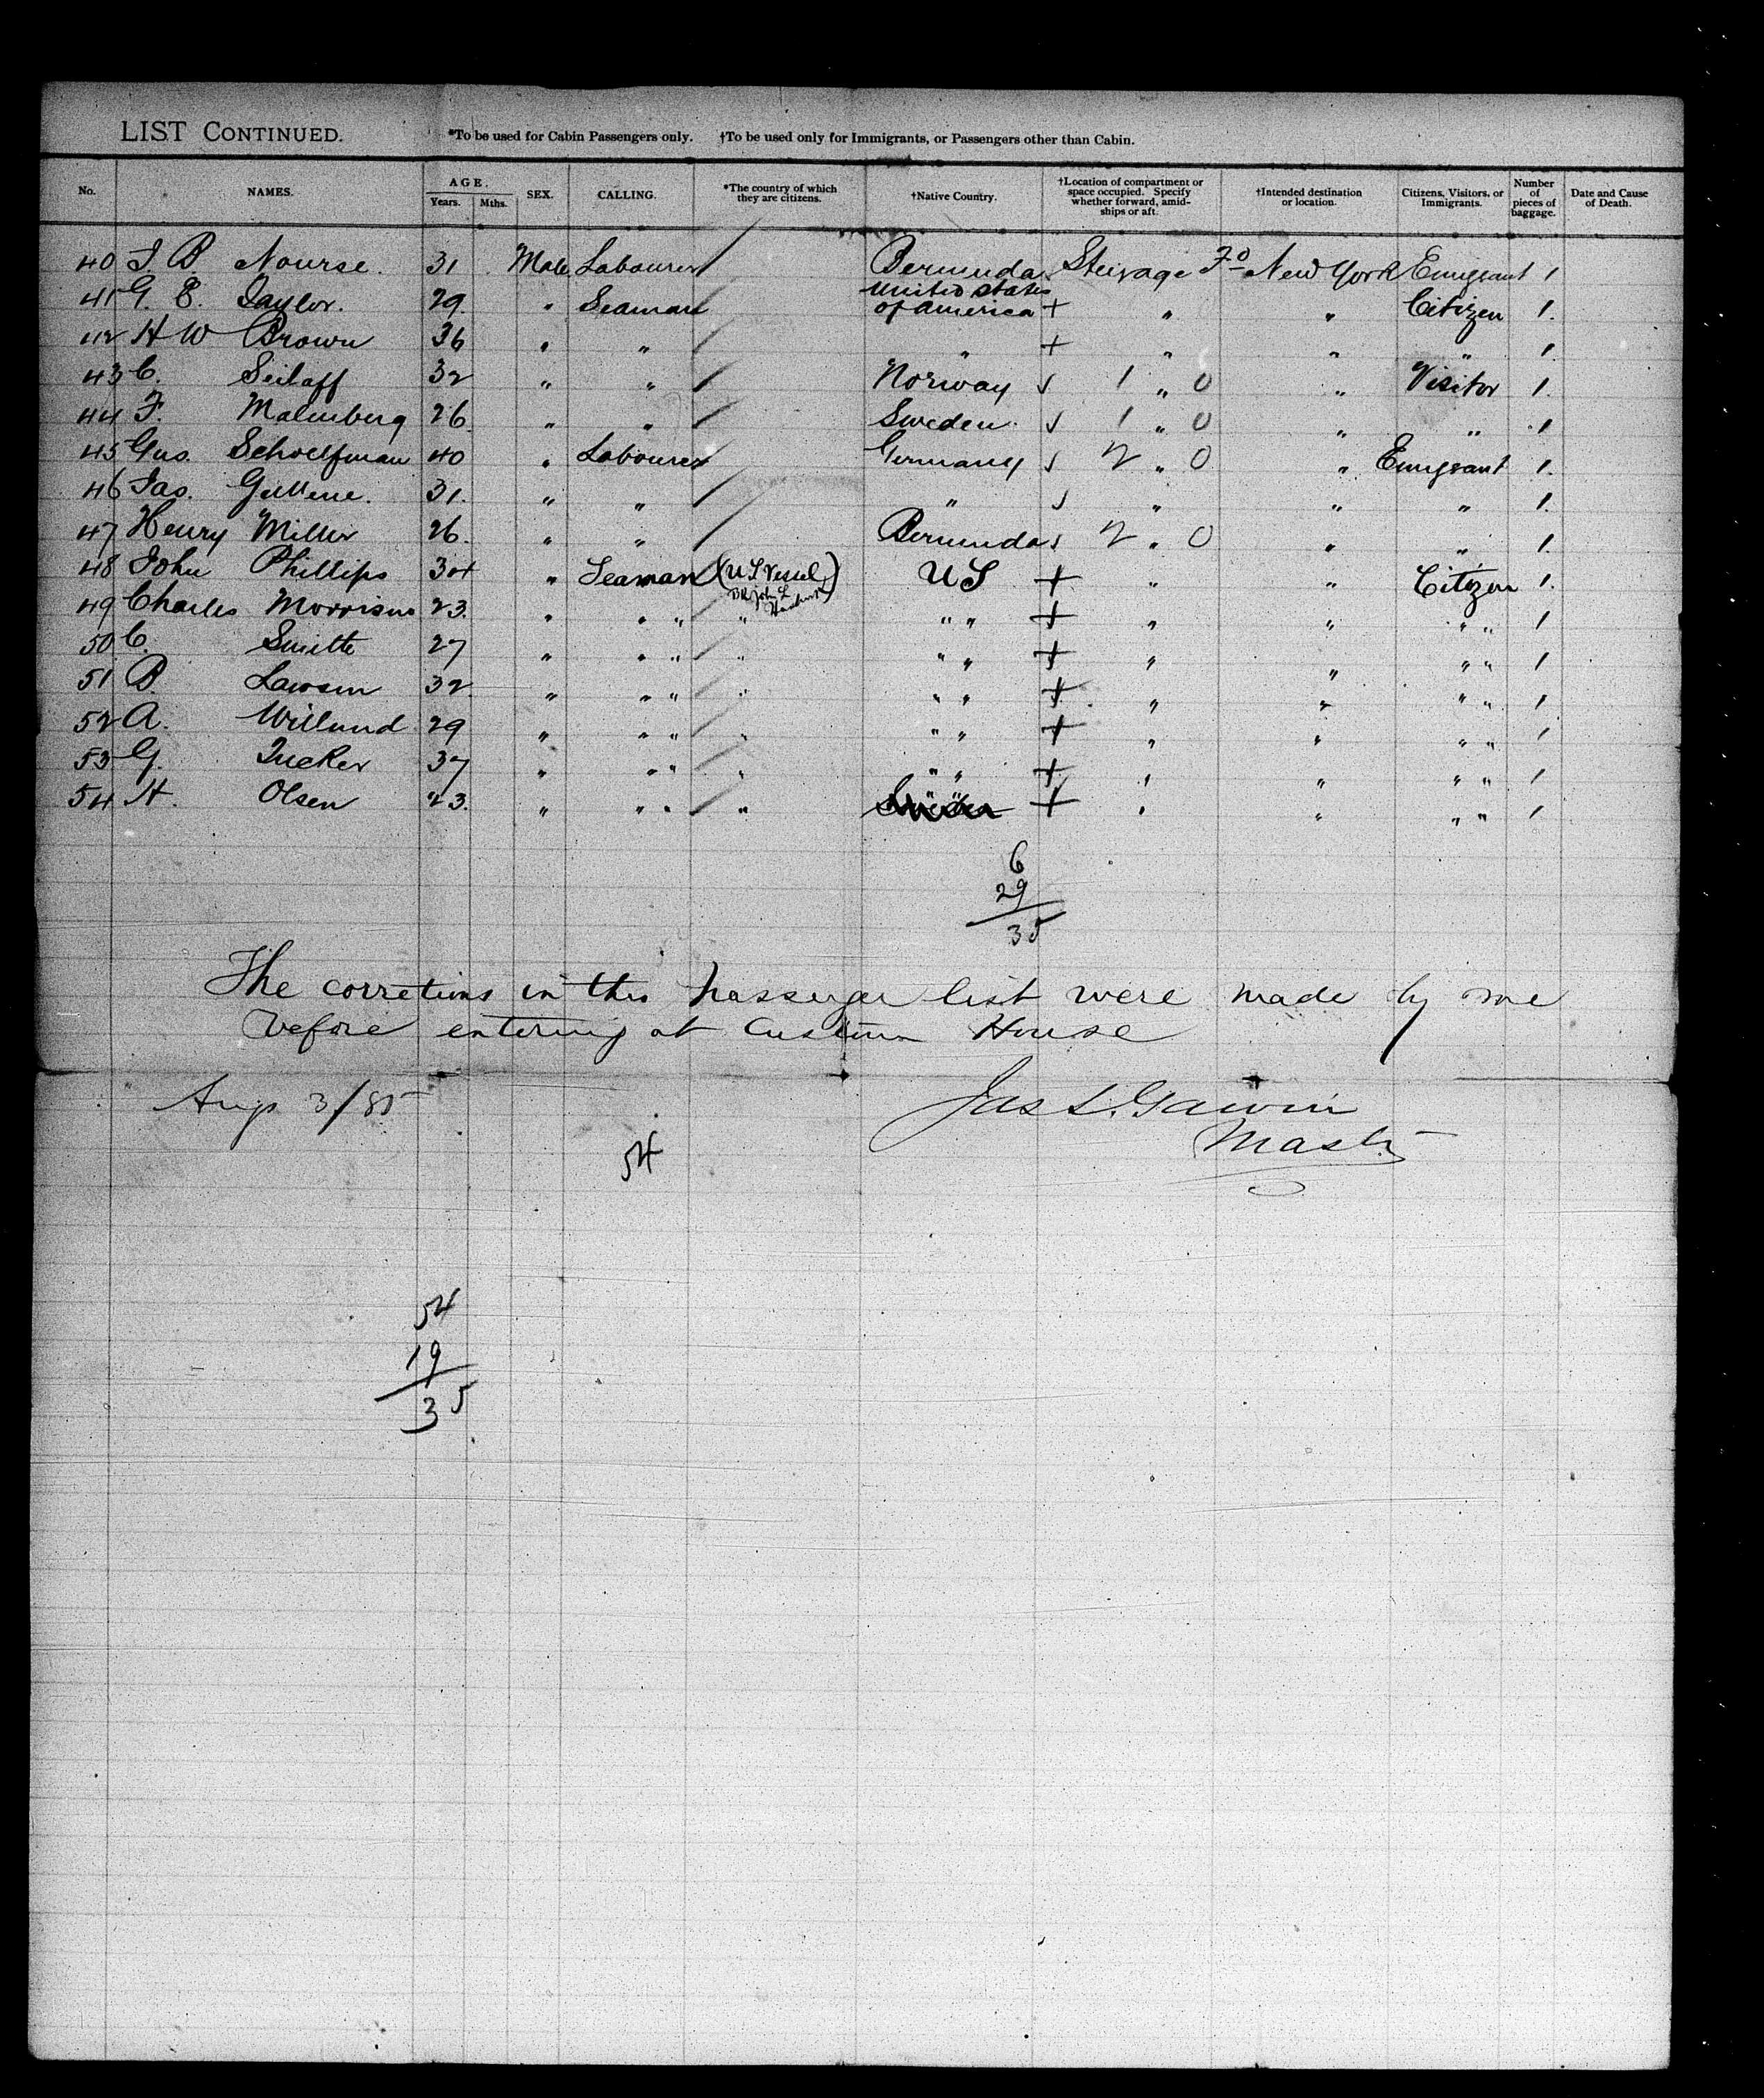 LIST CONTINUED. *To be used for Cabin Passengers only. †To be used only for Immigrants, or Passengers other than Cabin.
No. NAMES. AGE. Years. Mths. SEX. CALLING. *The country of which they are citizens. †Native Country. †Location of compartment or space occupied. Specify whether forward, amid-ships or aft. †Intended destination or location. Citizens, Visitors, or Immigrants. Number of pieces of baggage. Date and Cause of Death.
40 J. B. Nourse. 31 Male Labourer Bermuda Steerage Fo New York Emigrant 1
41 G. E. Taylor. 29. " Seaman United States of America + " " Citizen 1.
42 H W Brown 36 " " " + " " " 1.
43 C. 32 " " Norway ✓ 1 " 0 " Visitor 1.
44 F. Malmberg 26 " " Sweden. ✓ 1 " 0 " " 1
45 Gus. 40 " Labourer Germany ✓ 2 " 0 " Emigrant 1.
46 Jas. 31. " " " ✓ " " " 1.
47 Henry Miller 26. " " Bermuda ✓ 2 " 0 " " 1.
48 John Phillips 34 " Seaman (U S Vessel, John L ) U S + " " Citizen 1.
49 Charles Morrison 23. " " " " " " + " " " " 1
50 C. Smith 27 " " " " " " + " " " " 1
51 B. Lawson 32. " " " " " " + " " " " 1
52 A. 29 " " " " " " + " " " " 1
53 G. Tucker 37 " " " " " " + " " " " 1
54 H. Olsen 23. " " " " + " " " " 1
6
29
35
The corretions in this passenger list were made by me
before entering at Custom House
Aug 3/85 Jas L. Garvin
Master
54
54
19
35